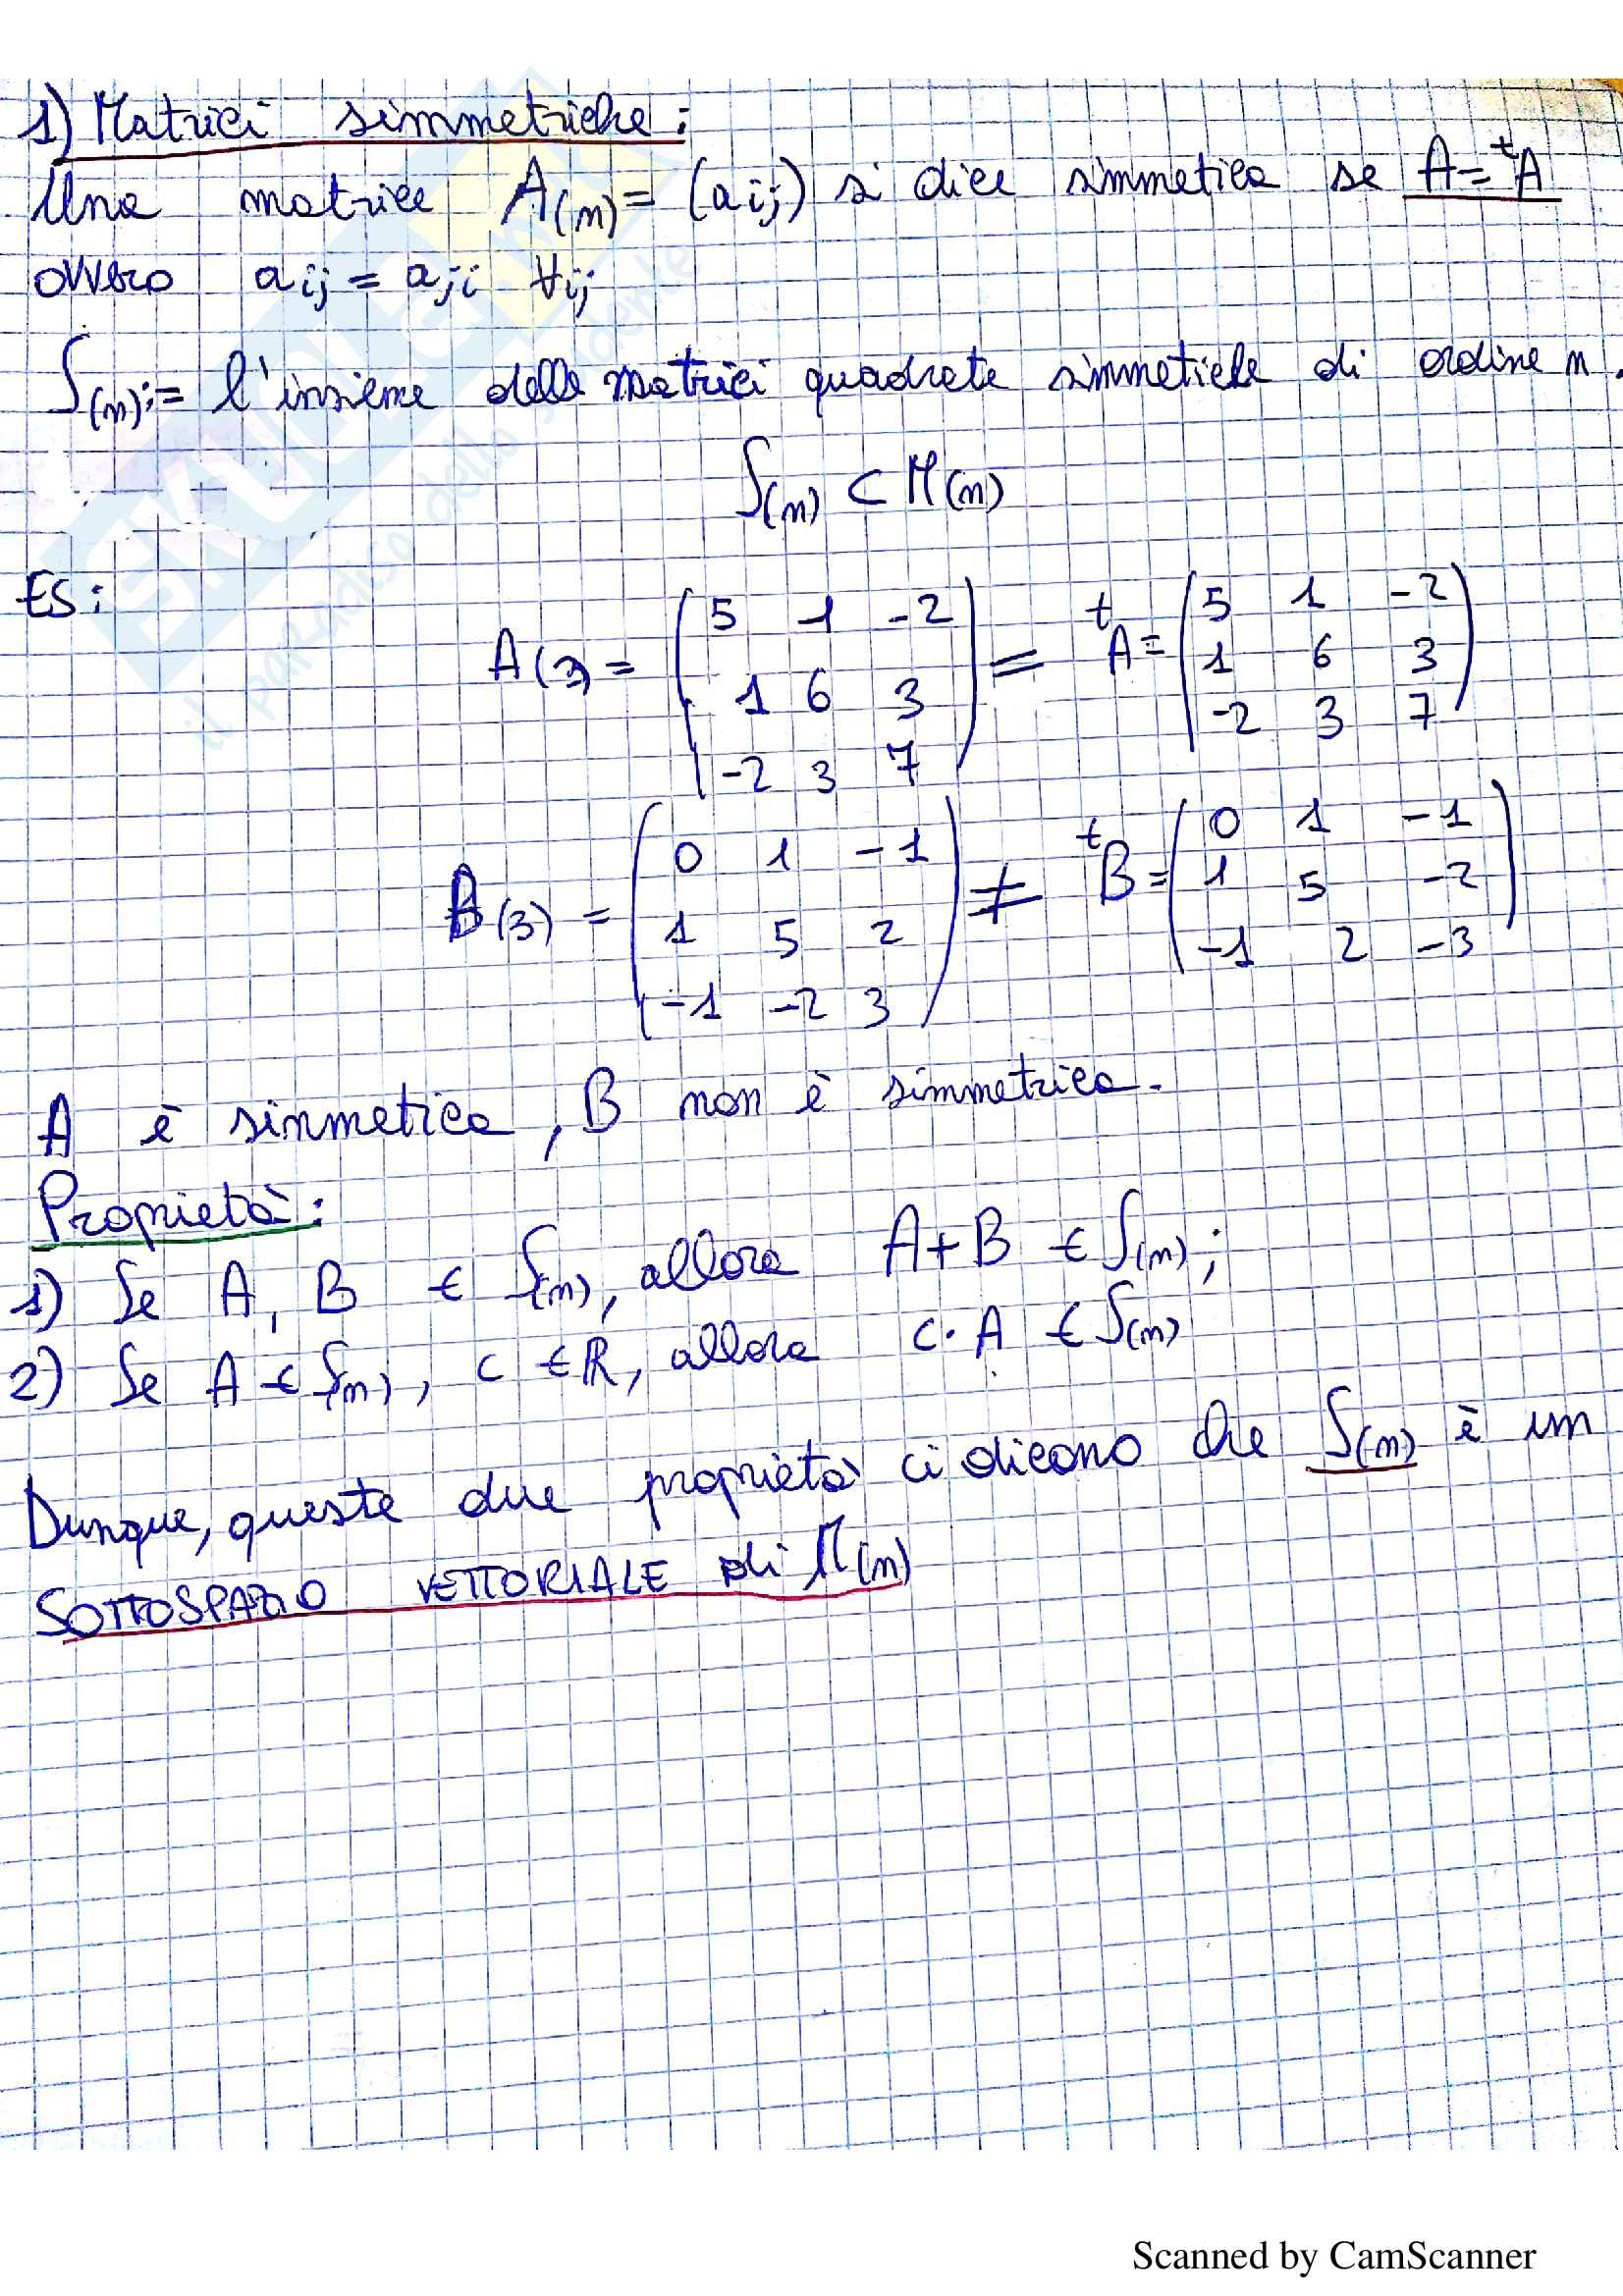 1) Matrici simmetriche:
Una matrice A(n) = (aij) si dice simmetica se A = ᵗA
ovvero aij = aji ∀ij
S(n) := l'insieme delle matrici quadrate simmetiche di ordine n.
S(n) ⊂ M(n)
ES:
A(3) = ( 5 1 -2 ) = ᵗA = ( 5 1 -2 )
1 6 3   1 6 3
-2 3 7   -2 3 7
B(3) = ( 0 1 -1 ) ≠ ᵗB = ( 0 1 -1 )
1 5 2   1 5 -2
-1 -2 3   -1 2 -3
A è simmetica, B non è simmetrica.
Proprietà:
1) Se A, B ∈ S(n), allora A+B ∈ S(n);
2) Se A ∈ S(n), c ∈ ℝ, allora c·A ∈ S(n)
Dunque, queste due proprietà ci dicono che S(n) è un
SOTTOSPAZIO VETTORIALE di M(n)
SKUOLA.NET
il paradiso dello studente
Scanned by CamScanner